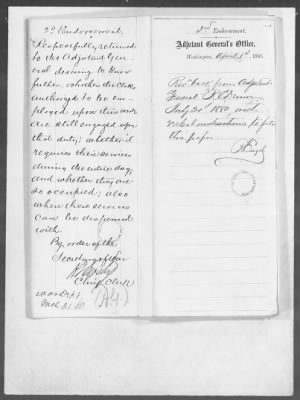 2d Endorsement.
Respectfully returned
to the Adjutant Gen-
eral desiring to know
further, whether the Clerks
authorized to be em-
ployed upon this work
are still engaged upon
that duty; whether it
requires their services
during the entire day,
and whether they are
so occupied; also
when their services
can be dispensed
with.
By order of the
Secretary of War
Chief Clerk
War Dept.
Mch 31. 80
Endorsement.
Adjutant General's Office,
Washington, April 1st, 1880.
Rec. back from Adjutant
General
July 20th 1880 with
verbal instructions to file
this paper.